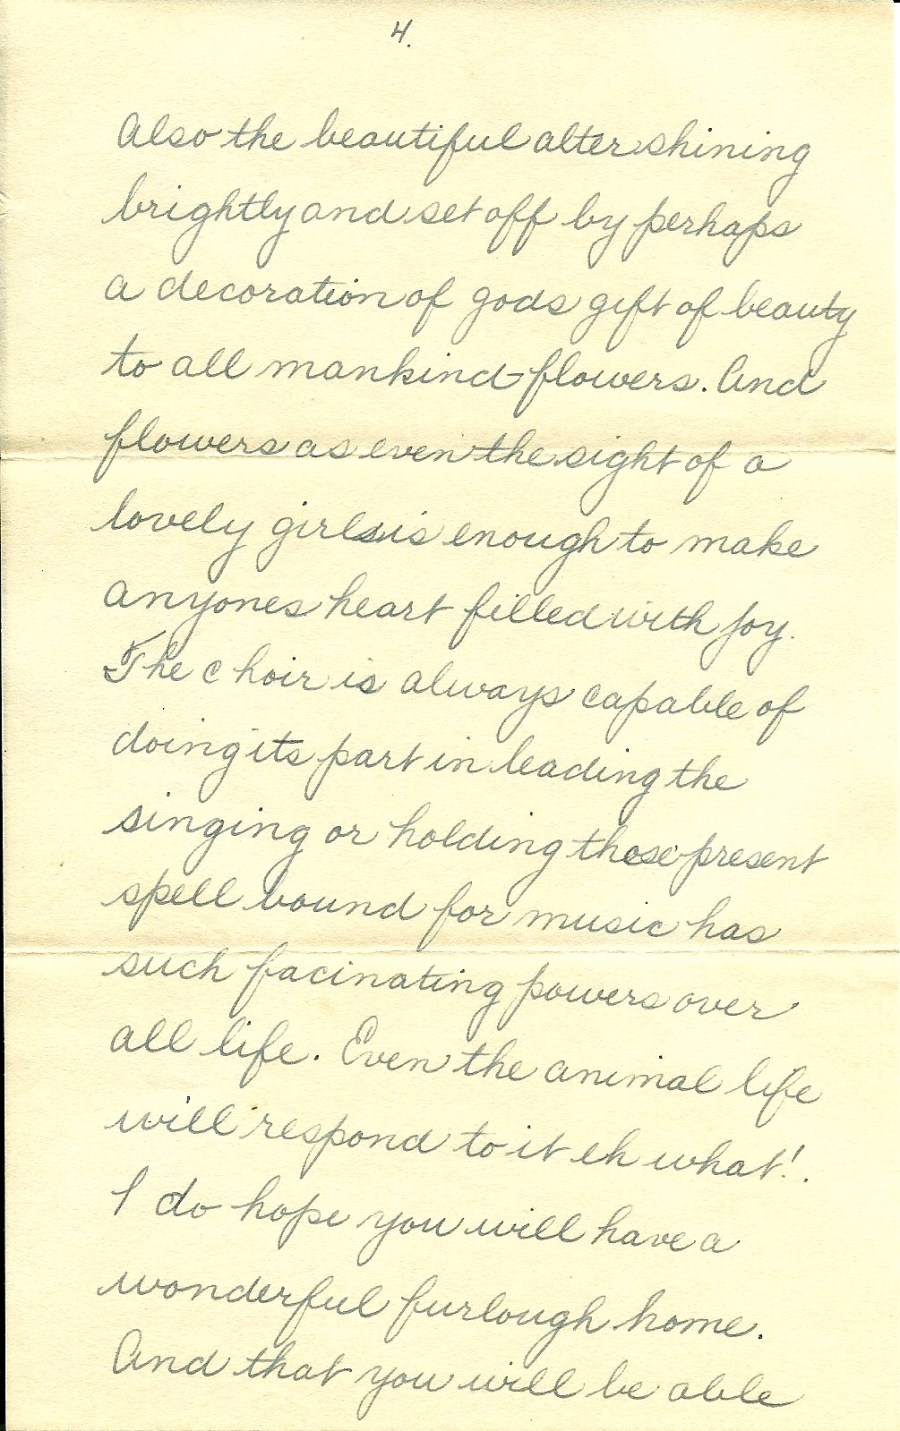 4.
Also the beautiful alter shining
brightly and set off by perhaps
a decoration of gods gift of beauty
to all mankind-flowers. And
flowers as even the sight of a
lovely girls is enough to make
anyones heart filled with joy.
The choir is always capable of
doing its part in leading the
singing or holding those present
spell bound for music has
such facinating powers over
all life. Even the animal life
will respond to it eh what!.
I do hope you will have a
wonderful furlough home.
And that you will be able